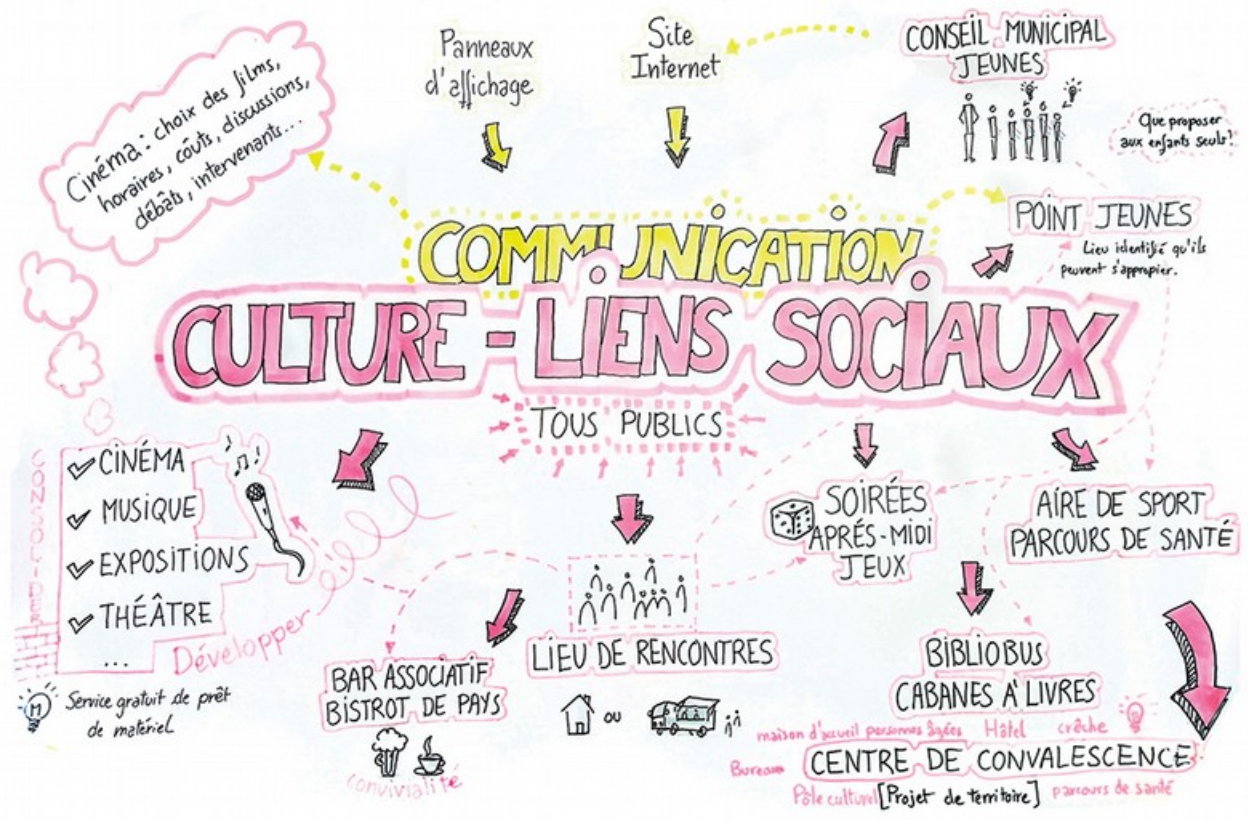 Cinéma : choix des films,
horaires, coûts, discussions,
débats, intervenants...
Panneaux
d'affichage
Site
Internet
CONSEIL MUNICIPAL
JEUNES
Que proposer
aux enfants seuls ?
POINT JEUNES
Lieu identifié qu'ils
peuvent s'approprier.
COMMUNICATION
CULTURE - LIENS SOCIAUX
TOUS PUBLICS
CONSOLIDER
CINÉMA
MUSIQUE
EXPOSITIONS
THÉÂTRE
...
Développer
M
Service gratuit de prêt
de matériel
BAR ASSOCIATIF
BISTROT DE PAYS
convivialité
LIEU DE RENCONTRES
OU
SOIRÉES
APRÉS-MIDI
JEUX
AIRE DE SPORT
PARCOURS DE SANTÉ
BIBLIOBUS
CABANES À LIVRES
maison d'accueil personnes âgées Hôtel crêche
Bureaux CENTRE DE CONVALESCENCE
Pôle culturel [Projet de territoire] parcours de santé